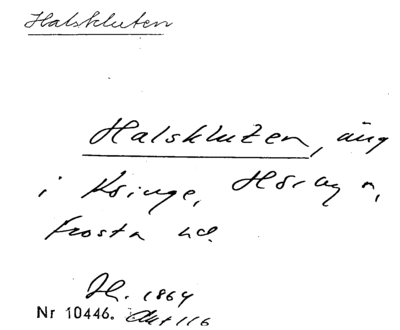 Halskluten
Halskluten, äng
i Kringe, Hörby n,
Frosta hd.
H. 1864
Nr 10446. Akt 116